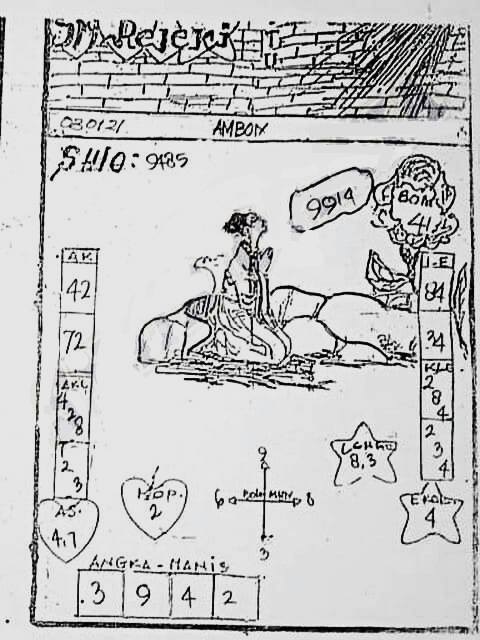 030121
AMBON
SHIO: 9485
9914
BOM
41
AK
42
72
AKL
4
2
8
2
3
AS.
4,7
KOP.
2
9
6
8
3
I-E
84
34
KLE
2
8
4
2
3
4
8,3
EKOR
4
ANGKA-MANIS
.3 9 4 2